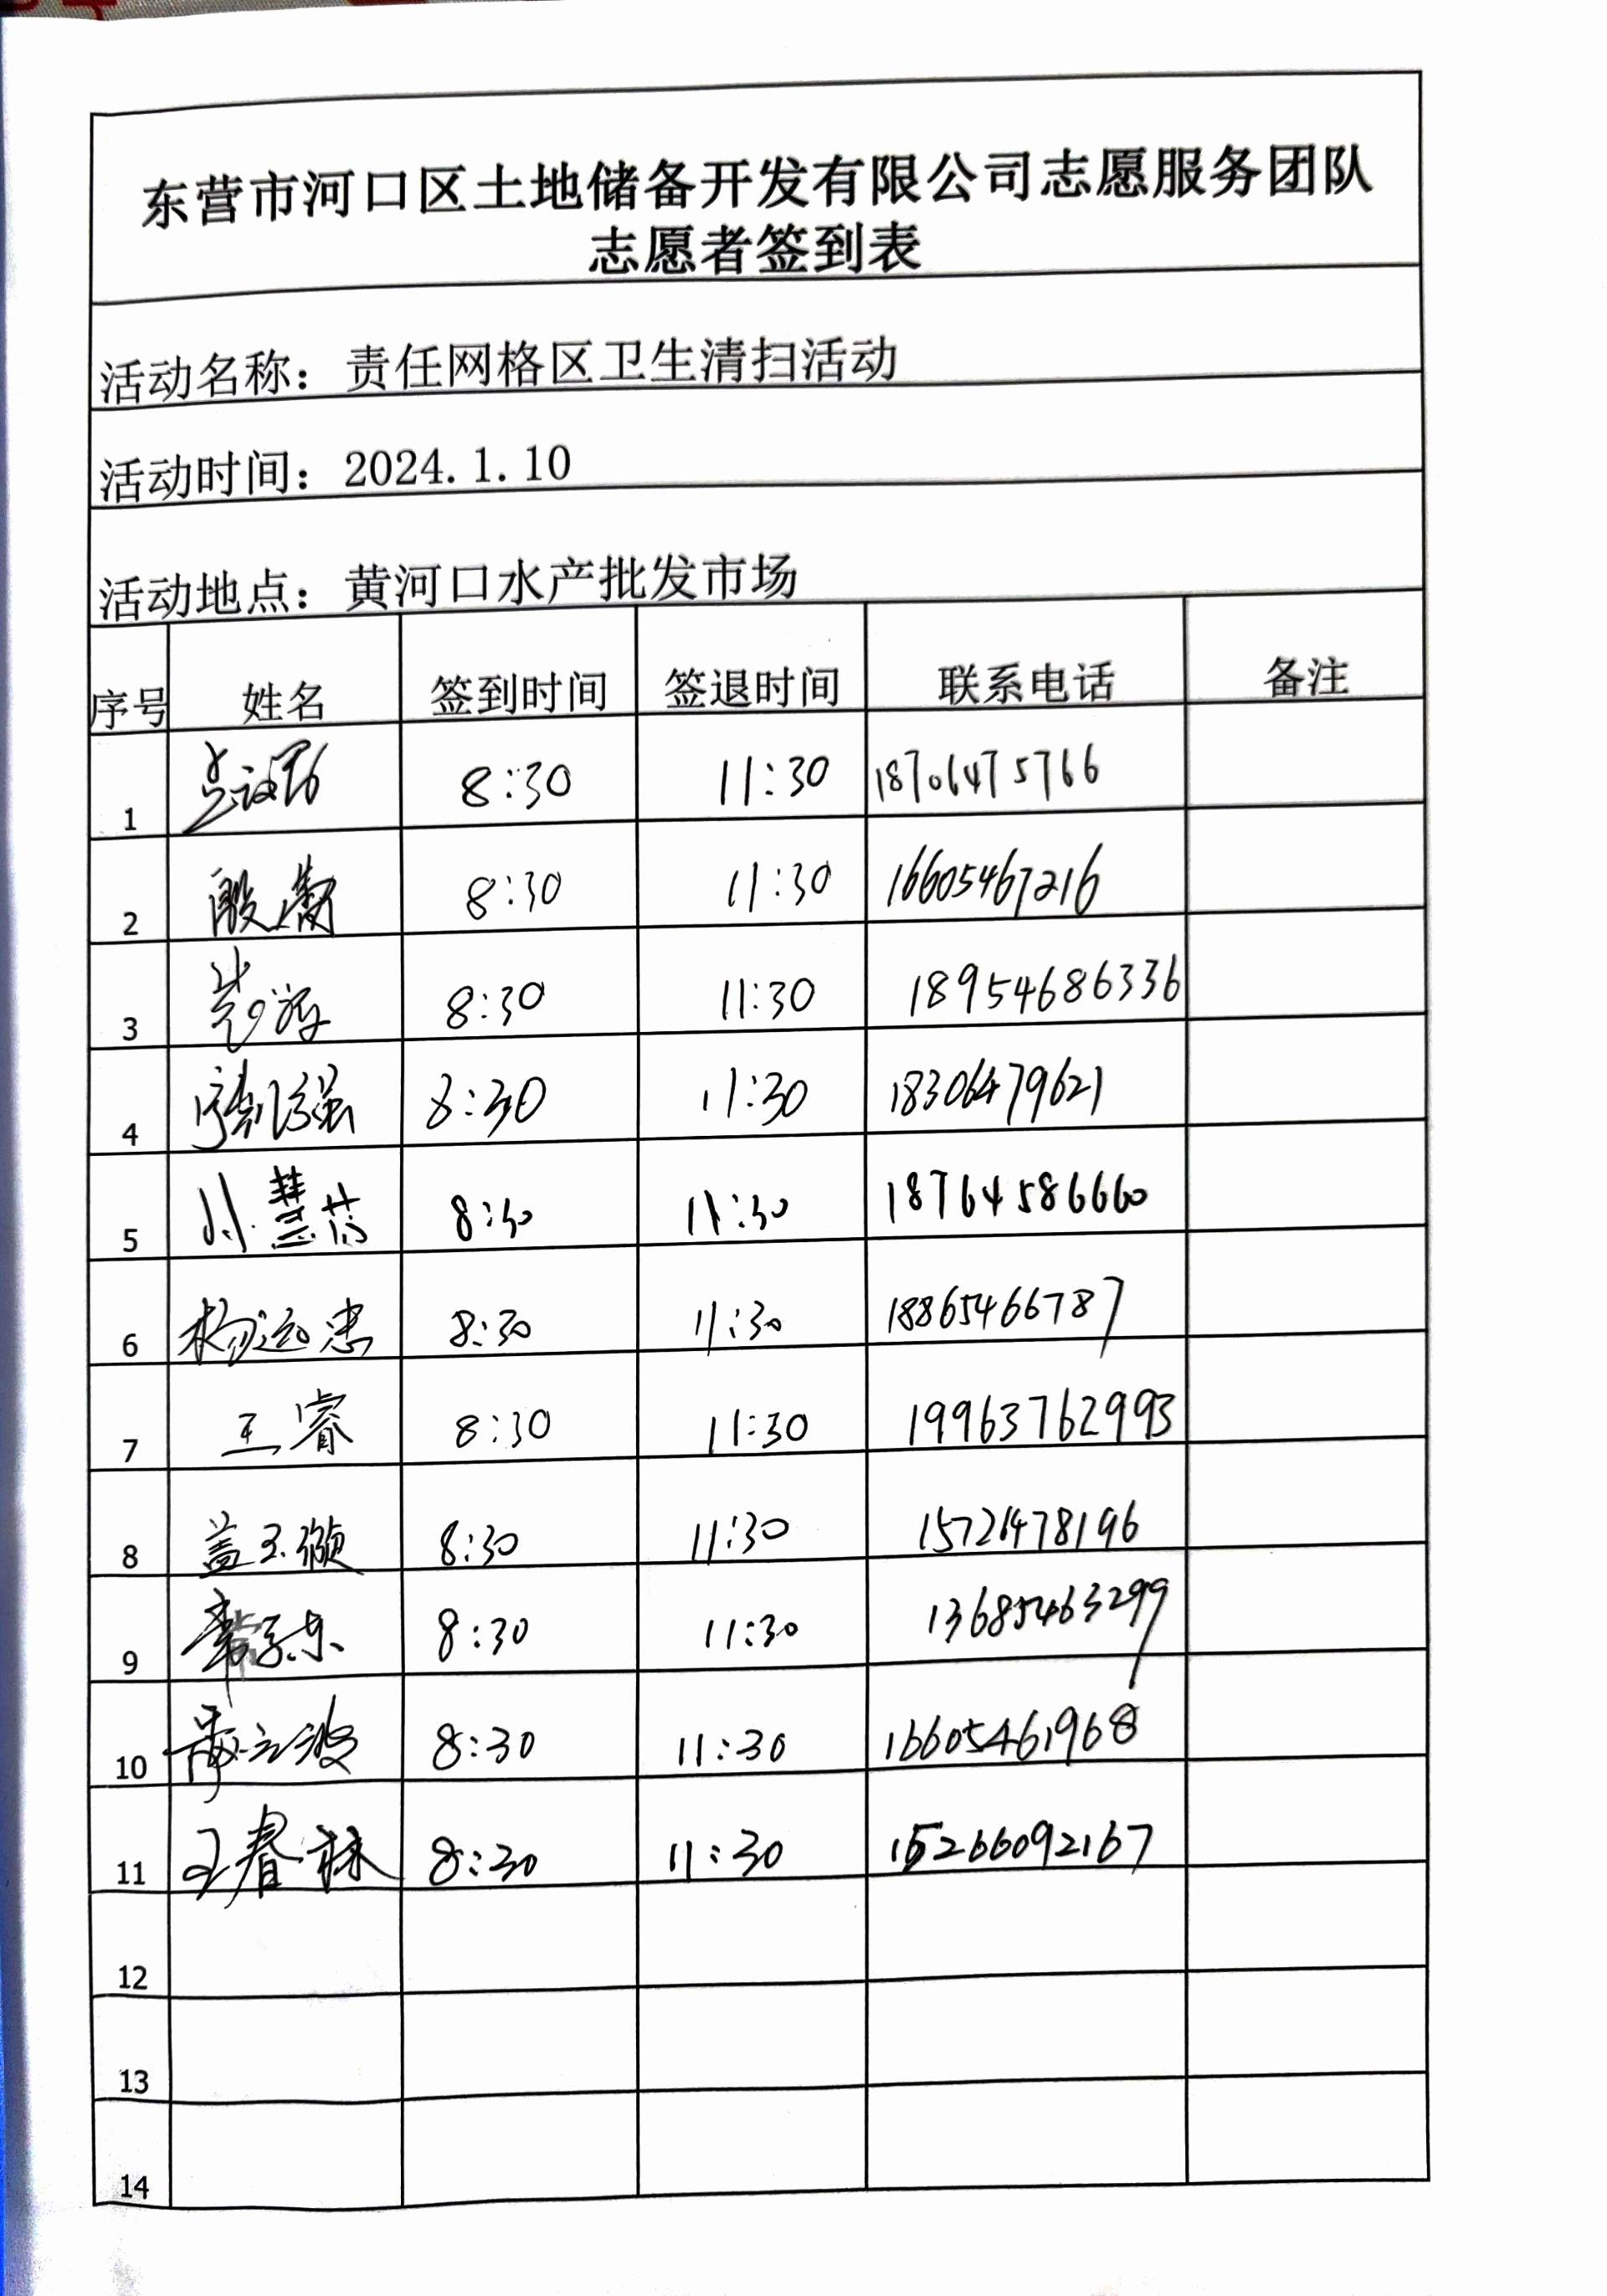 东营市河口区土地储备开发有限公司志愿服务团队
志愿者签到表
活动名称：责任网格区卫生清扫活动
活动时间：2024.1.10
活动地点：黄河口水产批发市场
序号 姓名 签到时间 签退时间 联系电话 备注
1 8:30 11:30 18706475766
2 殷 8:30 11:30 16605467216
3 8:30 11:30 18954686336
4 8:30 11:30 18306479621
5 慧芳 8:30 11:30 18764586660
6 杨运忠 8:30 11:30 18865466787
7 王睿 8:30 11:30 19963762993
8 盖玉颁 8:30 11:30 15721478196
9 8:30 11:30 13685463299
10 8:30 11:30 16605461968
11 王春林 8:30 11:30 15266092167
12
13
14